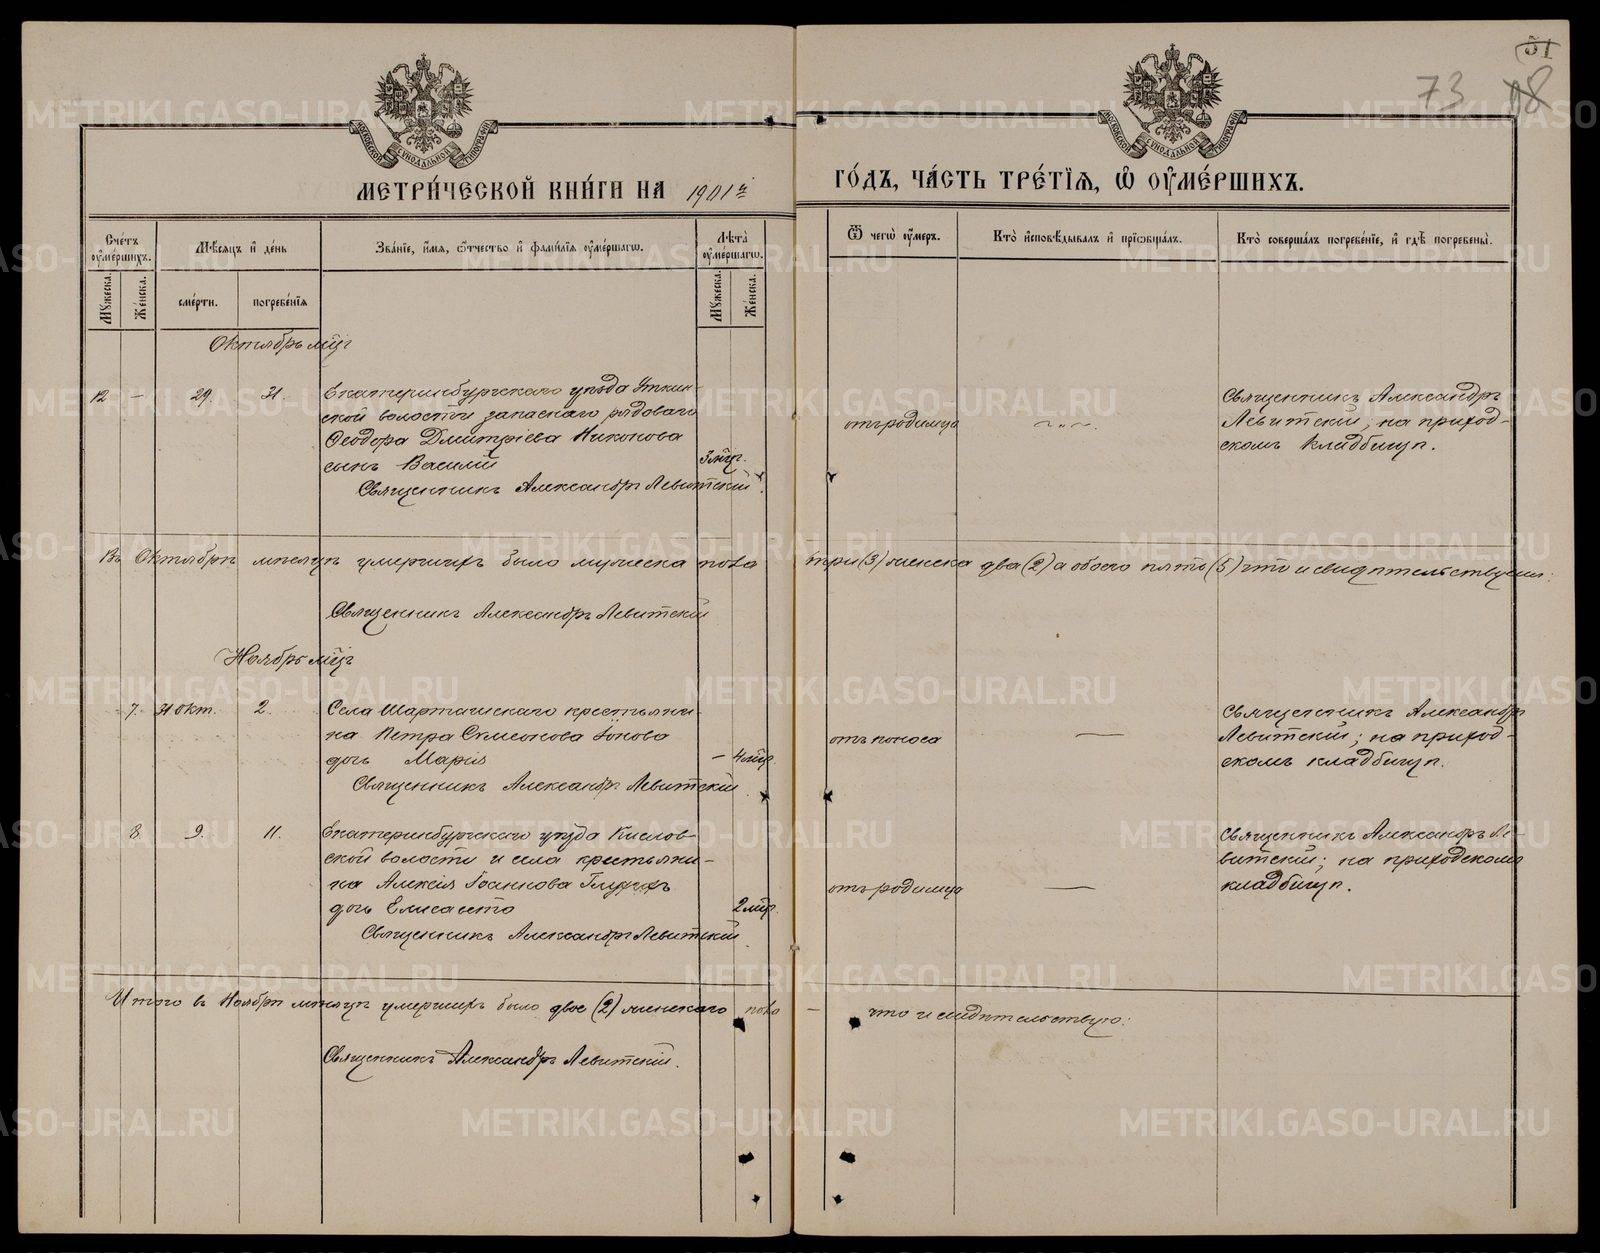 51
73
18
МОСКОВСКОЙ СУНОДАЛЬНОЙ ТИПОГРАФІИ
МОСКОВСКОЙ СУНОДАЛЬНОЙ ТИПОГРАФІИ
МЕТРИ́ЧЕСКОЙ КНИ́ГИ НА 1901й
ГО́ДЪ, ЧА́СТЬ ТРЕ́ТІѦ, Ѽ ОУ҆МЕ́РШИХЪ.
Сче́тъ оу҆ме́ршихъ.
Мѣ́сяцъ и҆ де́нь
Зва́нїе, и҆́мя, ѻ҆́тчество и҆ фами́лїя оу҆ме́ршагѡ.
Лѣ́та оу҆ме́ршагѡ.
Ѿ чегѡ̀ оу҆́меръ.
Кто̀ и҆сповѣ́дывалъ и҆ прїѡбща́лъ.
Кто̀ соверша́лъ погребе́нїе, и҆ гдѣ̀ погребены̀.
Мꙋ́жеска.
Же́нска.
сме́рти.
погребе́нїя
Мꙋ́жеска.
Же́нска.
Октябрь мцъ
12 - 29. 31. Екатеринбургскаго уѣзда Уткин-
ской волости запаснаго рядоваго
Ѳеодора Дмитріева Никонова
сынъ Василій 3 мцъ.
Священникъ Александръ Левитскій.
отъ родимца
Священникъ Александръ
Левитскій; на приход-
скомъ кладбищѣ.
Въ Октябрѣ мѣсяцѣ умершихъ было мужеска пола три (3) женска два (2) а обоего пять (5) что и свидѣтельствуемъ:
Священникъ Александръ Левитскій
Ноябрь мцъ
7. 31 окт. 2. Села Шарташскаго крестьяни-
на Петра Сѵмеонова Іонова
дочь Марія - 4 мцъ.
Священникъ Александръ Левитскій.
отъ поноса
Священникъ Александръ
Левитскій; на приход-
скомъ кладбищѣ.
8. 9. 11. Екатеринбургскаго уѣзда Кислов-
ской волости и села крестьяни-
на Алексія Іоаннова
дочь Елисавета 2 мцъ.
Священникъ Александръ Левитскій
отъ родимца
Священникъ Александръ Ле-
витскій; на приходскомъ
кладбищѣ.
Итого в Ноябрѣ мѣсяцѣ умершихъ было двое (2) женскаго пола - что и свидѣтельствую:
Священникъ Александръ Левитскій.
METRIKI.GASO-URAL.RU